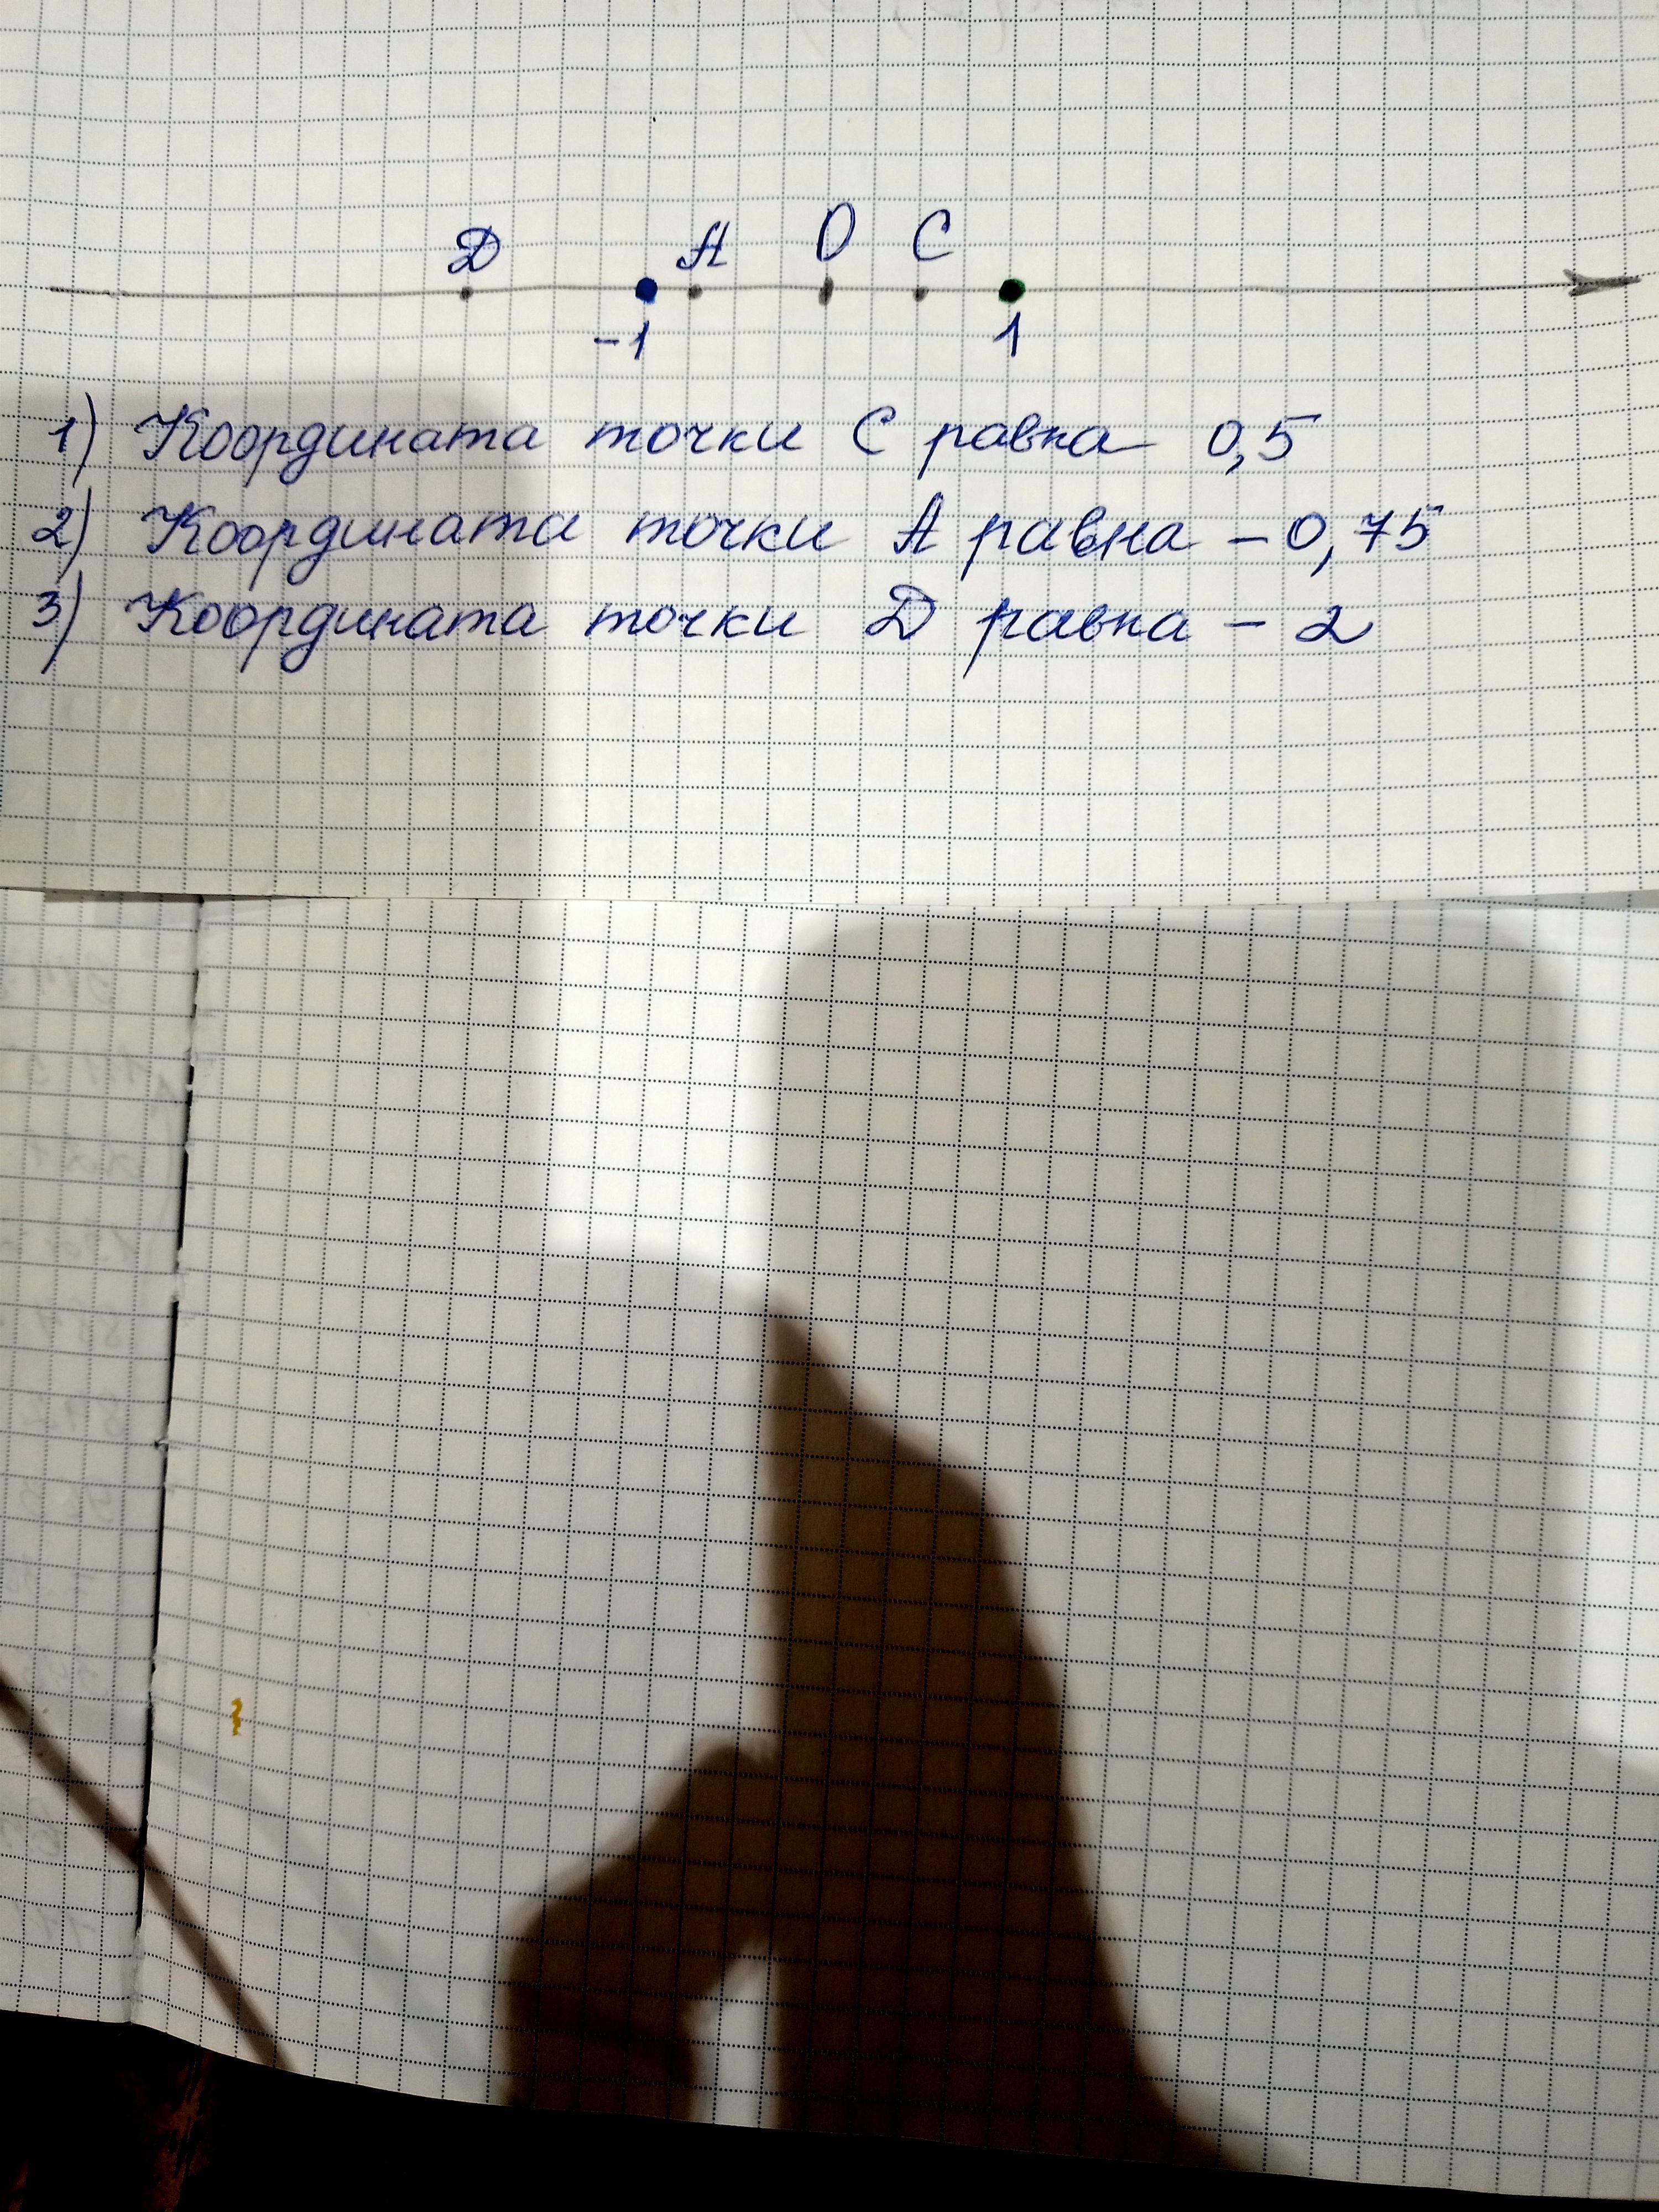 Д А О С
-1 1
1) Координата точки С равна 0,5
2) Координата точки А равна - 0,75
3) Координата точки Д равна - 2